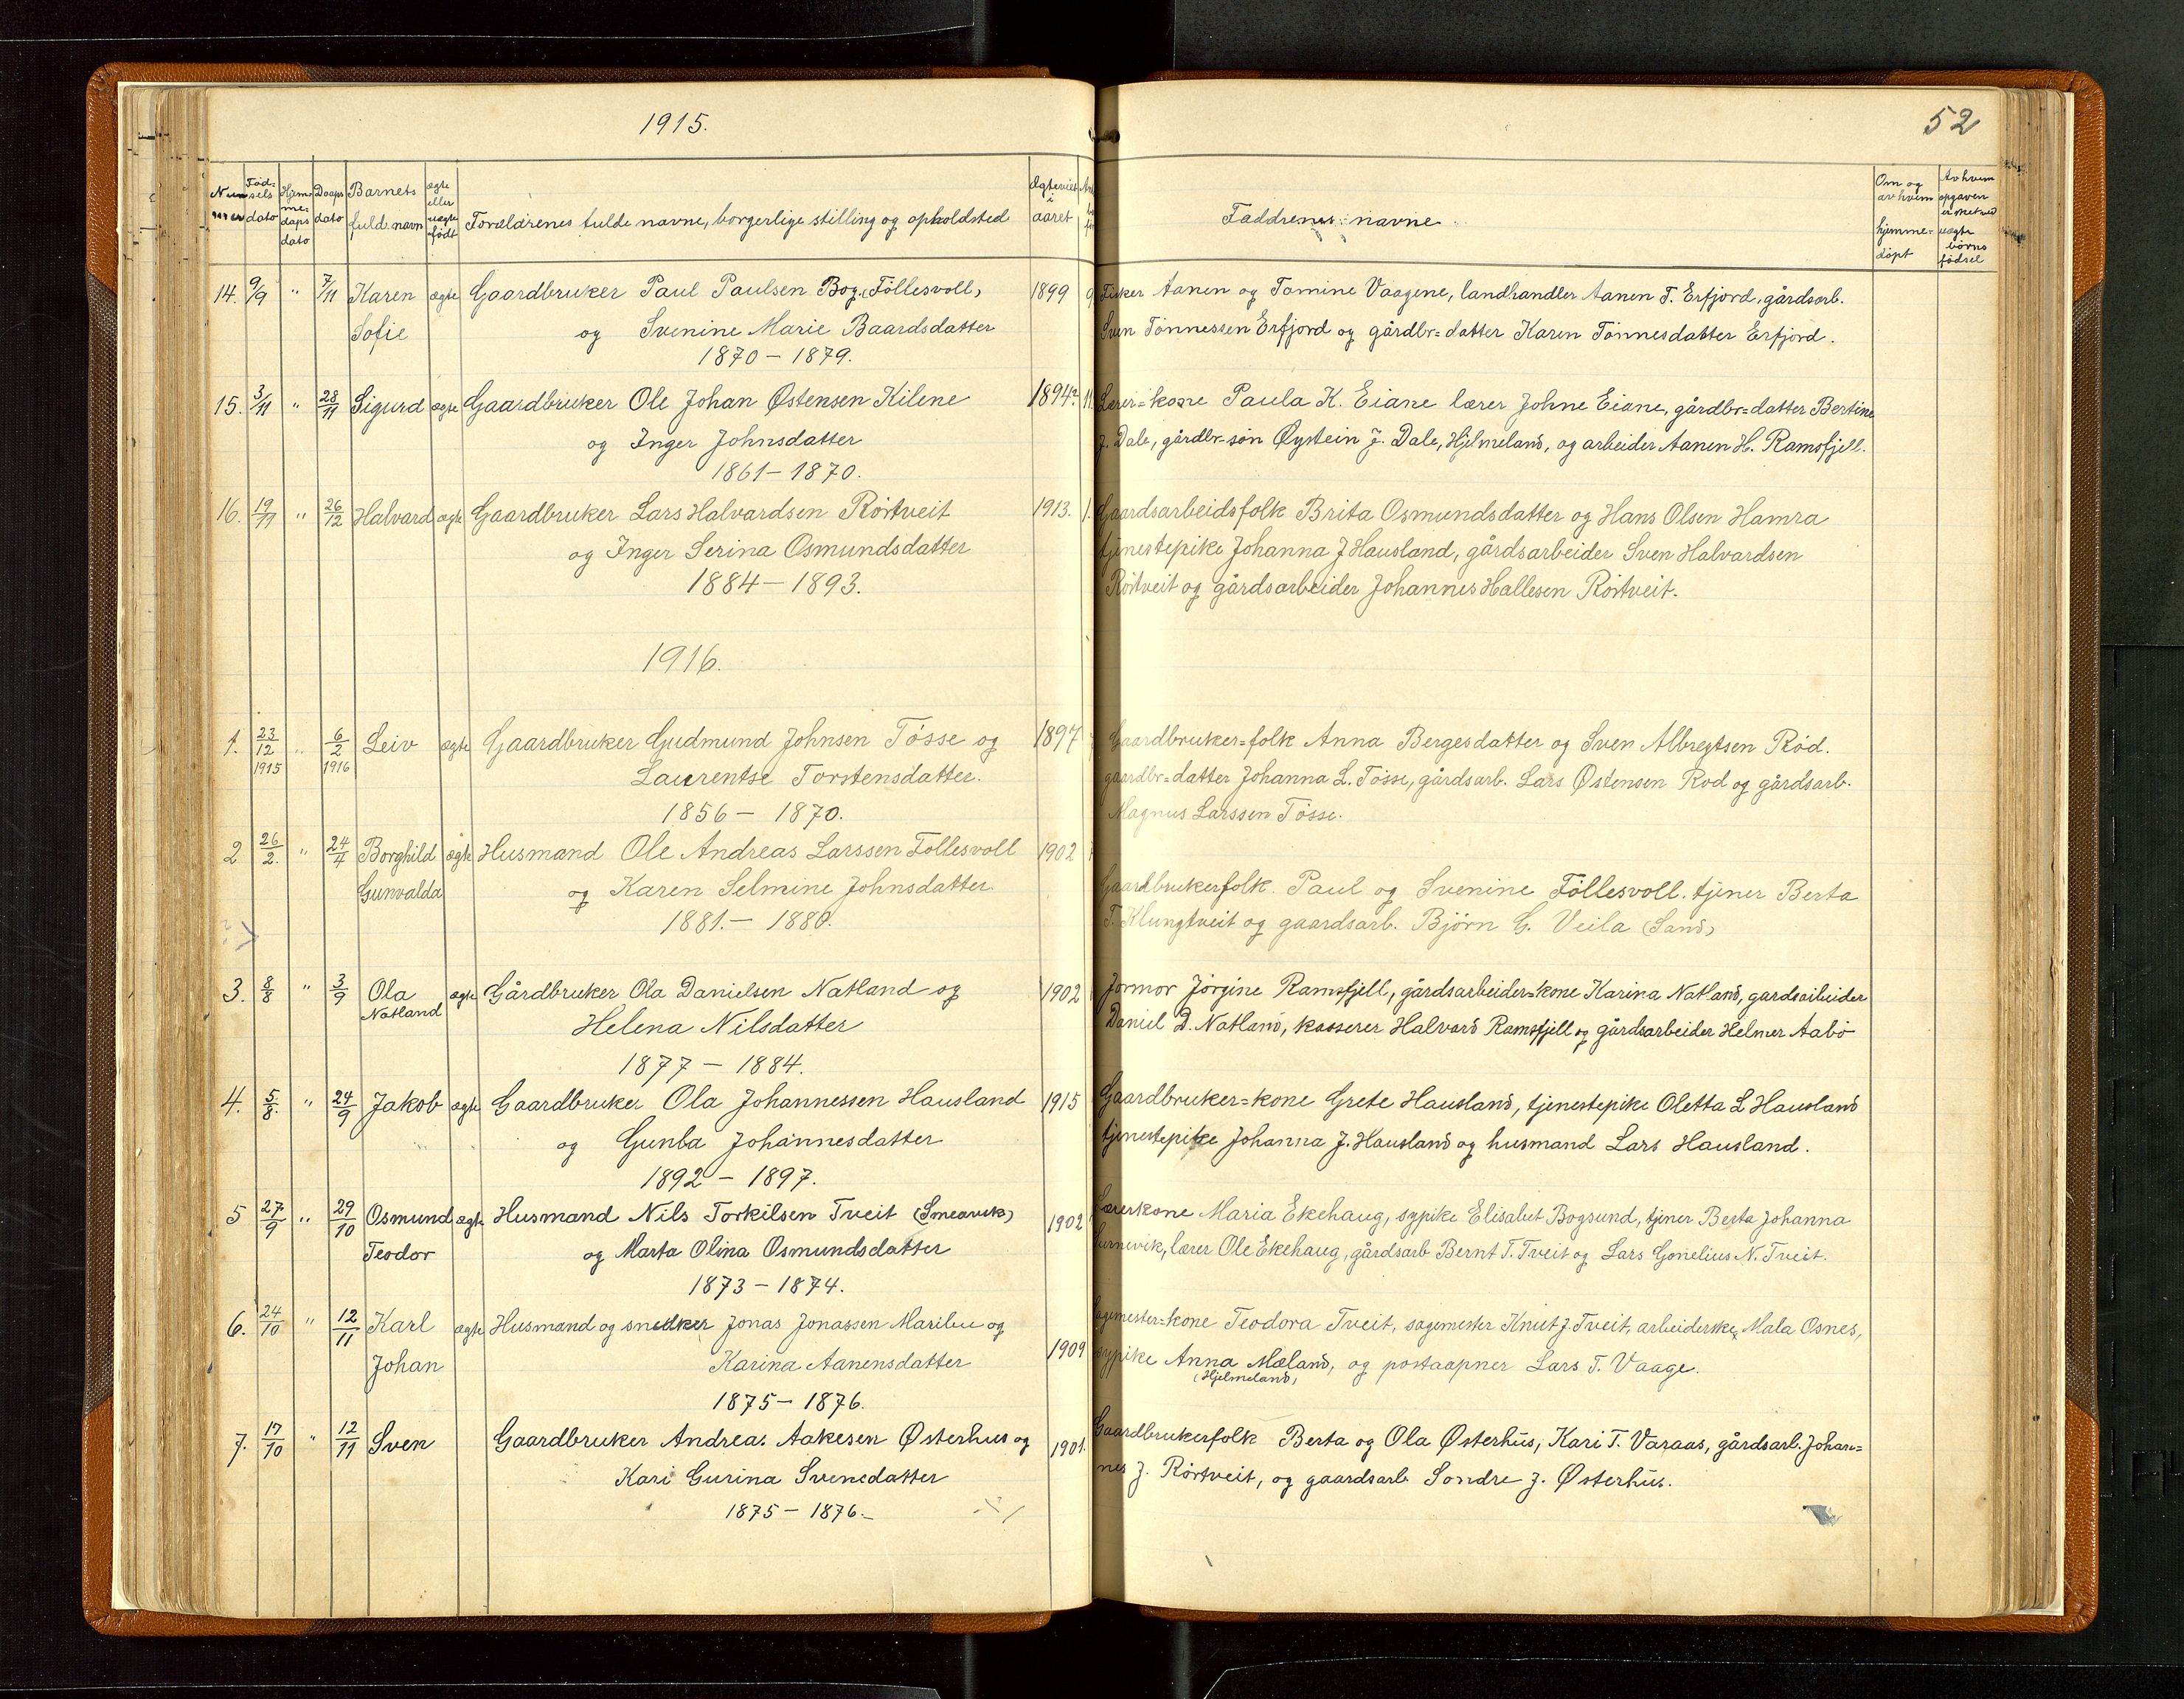 1915.
52
Nummer
Fødselsdato
Hjemmedaps dato
Daaps dato
Barnets fuld. navn
ægte eller uægte født
Forældrenes fulde navne, borgerlige stilling og opholdsted
Ægteviet i aaret
Faddrenes navne
Om og av hvem hjemmedøpt
Av hvem opgaven er sket ved uægte børns fødsel
14. 9/9 " 7/11 Karen ægte Gaardbruker Paul Paulsen Bog, (Föllesvoll) 1899
Sofie og Svenine Marie Baardsdatter
1870 – 1879.
Fisker Aanen og Tomine Vaagene, landhandler Aanen T. Erfjord, gårdsarb.
Sven Tönnessen Erfjord og gårdbr=datter Karen Tönnesdatter Erfjord.
15. 3/11 " 28/11 Sigurd ægte Gaardbruker Ole Johan Østensen Kilene 1894
og Inger Johnsdatter
1861 – 1870.
Lærer=kone Paula K. Eiane lærer Johne Eiane, gårdbr=datter Bertine
J. Dale, gårdbr-sön Øystein J. Dale, Hjelmeland, og arbeider Aanen H. Ramsfjell.
16. 19/11 " 26/12 Halvard ægte Gaardbruker Lars Halvardsen Rörtveit 1913.
og Inger Serina Osmundsdatter
1884 – 1893.
Gaardsarbeidsfolk Brita Osmundsdatter og Hans Olsen Hamra
tjenestepike Johanna J Hausland, gårdsarbeider Sven Halvardsen
Rörtveit og gårdsarbeider Johannes Hallesen Rörtveit.
1916.
1. 23/12 1915 " 6/2 1916 Leiv ægte Gaardbruker Gudmund Johnsen Tösse og 1897
Laurentse Torstensdatter.
1856 – 1870.
Gaardbruker=folk Anna Bergesdatter og Sven Albregtsen Röd.
gaardbr=datter Johanna L. Tösse, gårdsarb. Lars Østensen Rod og gårdsarb.
Magnus Larssen Tösse.
2 26/2. " 24/4 Borghild ægte Husmand Ole Andreas Larssen Follesvoll 1902
Gunvalda og Karen Selmine Johnsdatter
1881. – 1880.
Gaardbrukerfolk Paul og Svenine Föllesvoll. tjener Berta
T. Klungtveit og gaardsarb. Björn G. Veila (Sand)
3. 8/8 " 3/9 Ola Natland ægte Gårdbruker Ola Danielsen Natland og 1902
Helena Nilsdatter
1877 – 1884.
Jormor Jörgine Ramsfjell, gårdsarbeider=kone Karina Natland, gardsaibeider
Daniel D. Natland, kasserer Halvard Ramsfjell og gårdsarbeider Helmer Aabö
4. 5/8. " 24/9 Jakob ægte Gaardbruker Ola Johannessen Hausland 1915
og Gunla Johannesdatter
1892 – 1897.
Gaardbruker=kone Grete Hausland, tjenestepike Oletta L Hausland
tjenestepike Johanna J. Hausland og husmand Lars Hausland.
5 27/9 " 29/10 Osmund ægte Husmand Nils Torkilsen Tveit (Smeavik) 1902
Teodor og Marta Olina Osmundsdatter
1873 – 1874.
Lærerkone Maria Ekehaug, sypike Elisabet Bogsund, tjener Berta Johanna
lærer Ole Ekehaug, gårdsarb Bernt T. Tveit og Lars Gonelius N. Tveit.
6. 24/10 " 12/11 Karl ægte Husmand og snedker Jonas Jonassen Maribu og 1909
Johan Karina Aanensdatter
1875 – 1876.
Sagmester=kone Teodora Tveit, sagemester Knut J. Tveit, arbeiderske Mala Osnes,
sypike Anna Mæland, og postaapner Lars T. Vaage.
(Hjelmeland)
7. 17/10 " 12/11 Sven Gaardbruker Andreas Aakesen Østerhus og 1901.
Kari Gurina Svensdatter
1875 – 1876.
Gaardbrukerfolk Berta og Ola Østerhus, Kari T. Varaas, gårdsarb. Johan=
nes J. Rörtveit, og gaardsarb Sondre J. Østerhus.